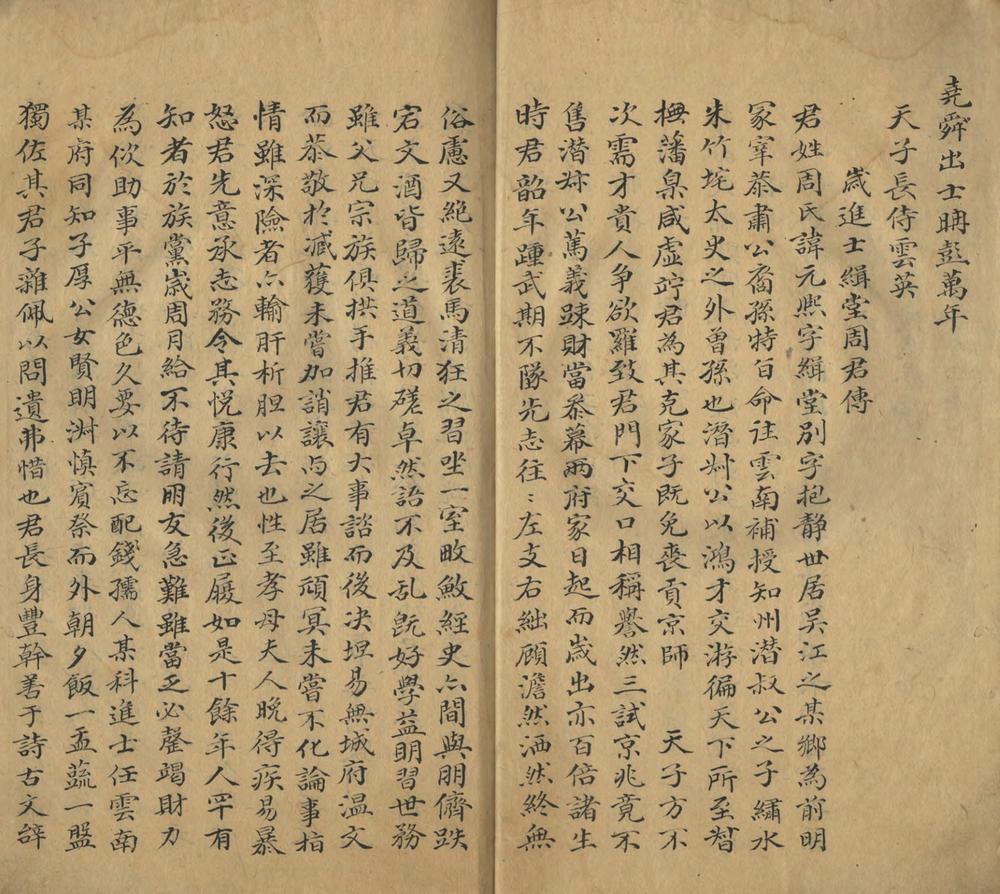 堯舜出士眪彭萬年
天子長侍雲英
歲進士緝堂周君傳
君姓周氏諱元熙字緝堂別字抱静世居吴江之某鄉為前明
冢宰恭肅公裔孫特百命往雲南補授知州潜叔公之子繡水
朱竹垞太史之外曽孫也潛叔公以鴻才交游徧天下所至督
撫藩臬咸虚竚君為其克家子既免喪貢京師 天子方不
次需才貴人争欲羅致君門下交口相稱譽然三試京兆竟不
售潜叔公篤義踈財當叅幕兩府家日起而歲出亦百倍諸生
時君韶年踵武期不隊先志往〻左支右絀顧澹然洒然終無
俗慮又絶遠裘馬清狂之習坐一室畋鮫經史亦間與朋儕跌
宕文酒皆歸之道義切磋卓然語不及乱既好學益眀習世務
雖父兄宗族俱拱手推君有大事諮而後决坦易無城府温文
而恭敬於臧獲未嘗加誚讓與之居雖頑冥未嘗不化論事指
情雖深險者亦輸肝析胆以去也性至孝母夫人晚得疾易暴
怒君先意承志務令其悦康行然後正屐如是十餘年人罕有
知者於族黨歲周月給不待請朋友急難雖當乏必罄竭財力
為佽助事平無德色久要以不忘配錢孺人某科進士任雲南
某府同知子厚公女賢明淑慎賓祭而外朝夕飯一盂蔬一盤
獨佐其君子雜佩以問遺弗惜也君長身豐幹善于詩古文辞